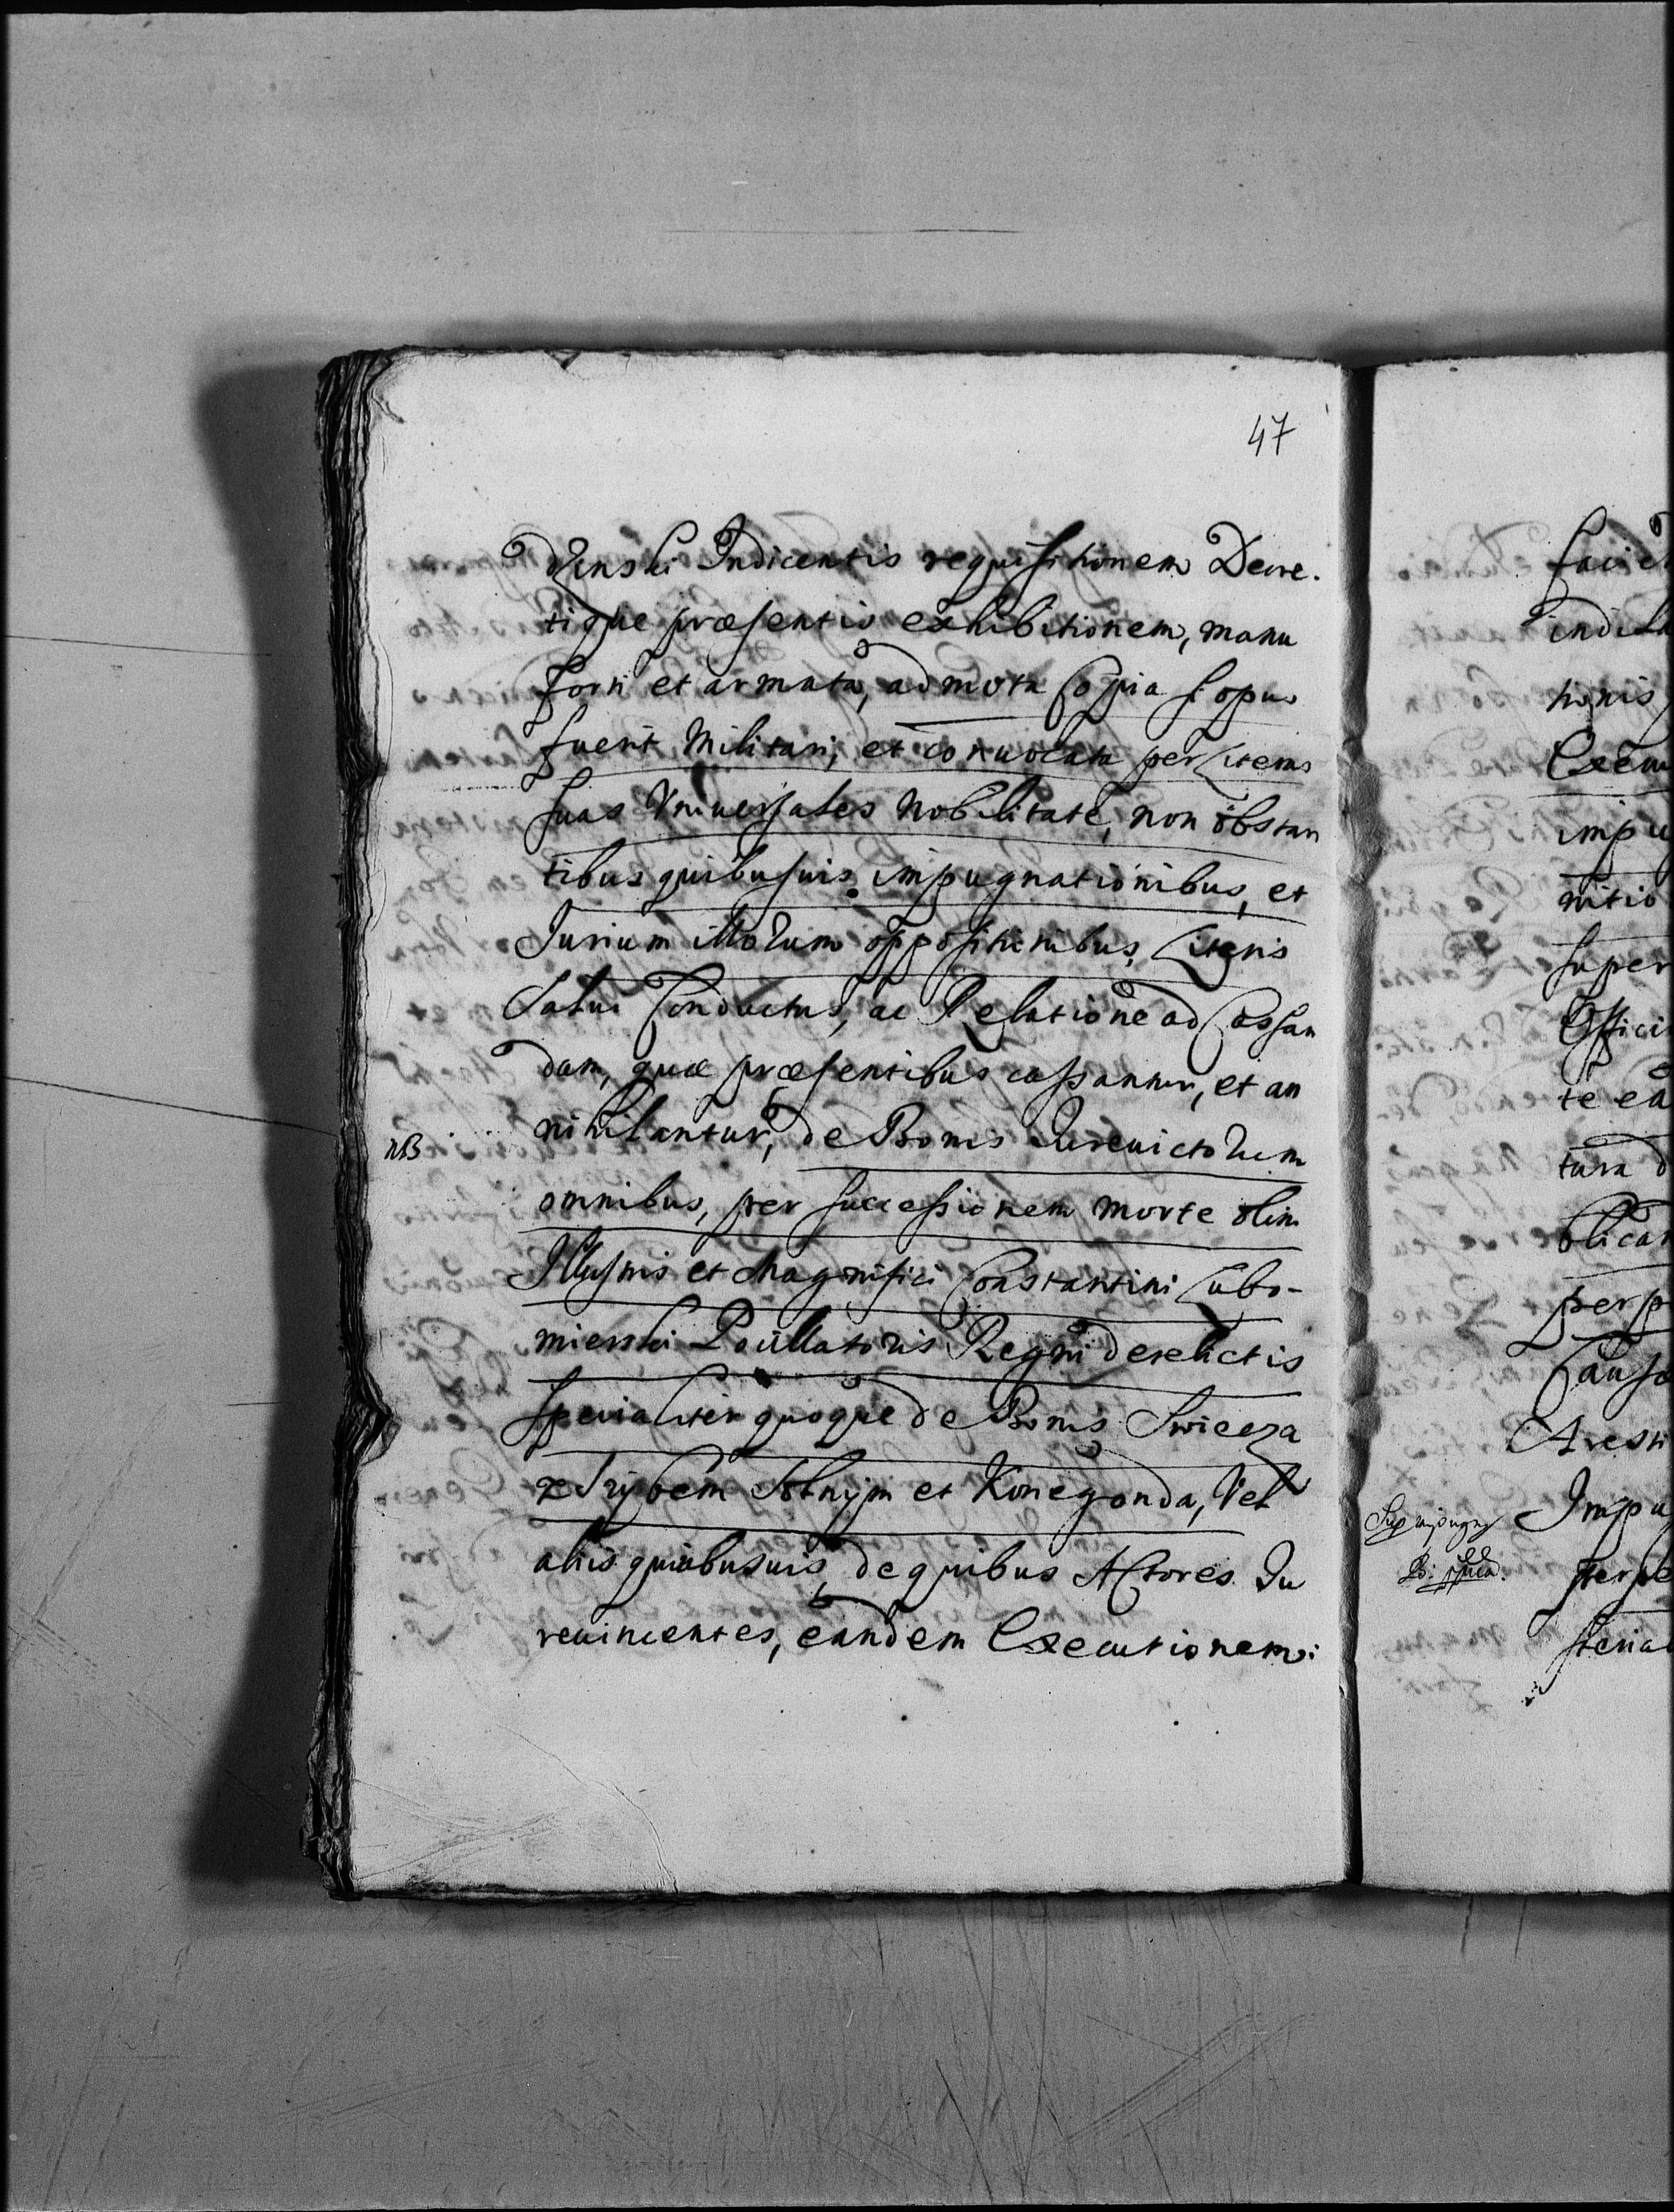 47
dzinski Indicentis requisitionem Decre.
tique præsentis exhibitionem, manu
forti et armata, admota Copia si opus
fuerit Militari, et convocata per Literas
suas Universales Nobilitate, non obstan
tibus quibusuis impugnationibus, et
Iurium illorum oppositionibus, Literis
Salui Conductus, ac Relatione ad Cassan
dam, quæ præsentibus cassantur, et an
nihilantur, de Bonis Iurevictorum
NB
omnibus, per successionem morte olim
Illustris et Magnifici Constantini Lubo-
mierski Pocillatoris Regni derelictis
specialiter quoque de Bonis Swiecza
z Rybem Kolnym et Konegonda, Vel
alijs quibusuis, de quibus Actores Iu
revincentes, eandem Executionem:
facien
indila
tionis
Execu
impu
nitio
super
Offici
te ea
tura d
blicat
perp
Causæ
Aresti
Impu
perpe
steria